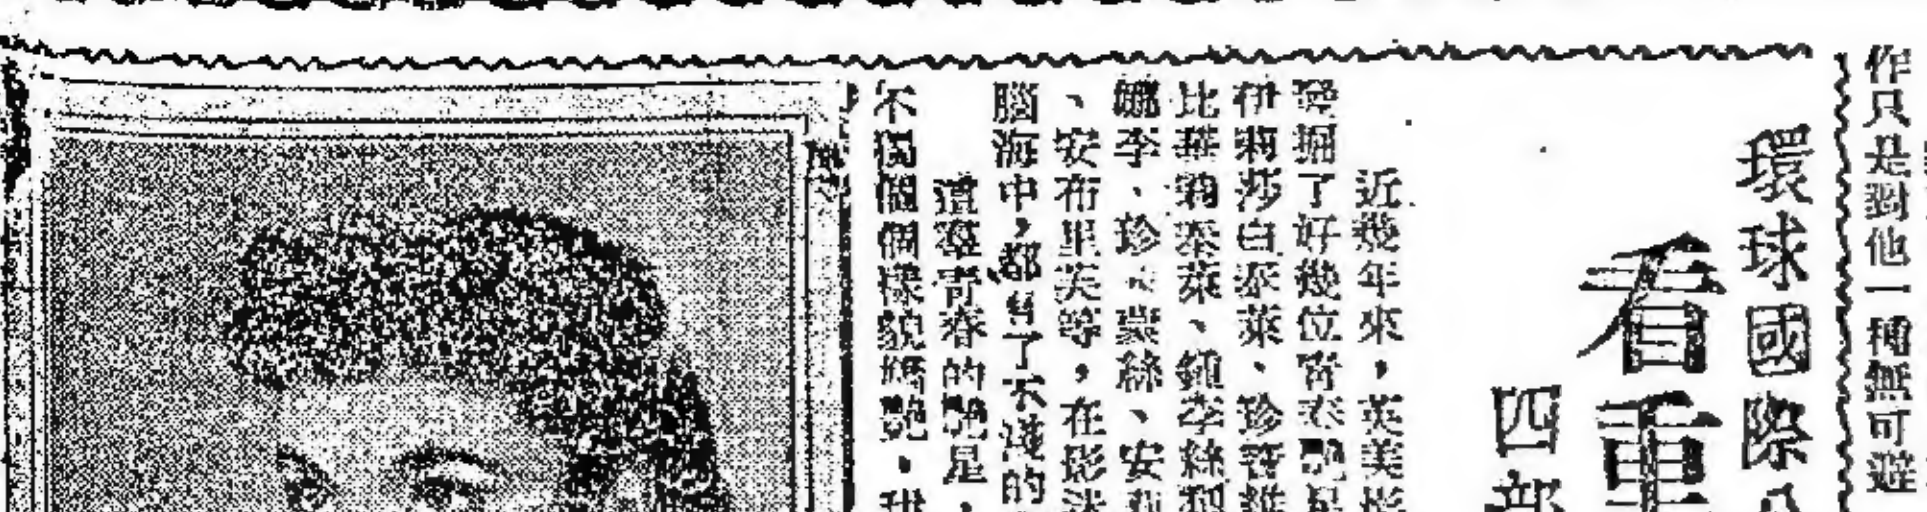 作只是對他一種無可避
環球國際
看重
四部
近幾年來，英美影
發掘了好幾位青春艷星
伊莉莎白泰萊、珍
比華莉泰萊、鍾李絲
李、珍 蒙絲、安
、安布里芙等，在影
腦海中，都 了不淺的
這羣青春的艷星，
不獨個個樣貌嬌艷，